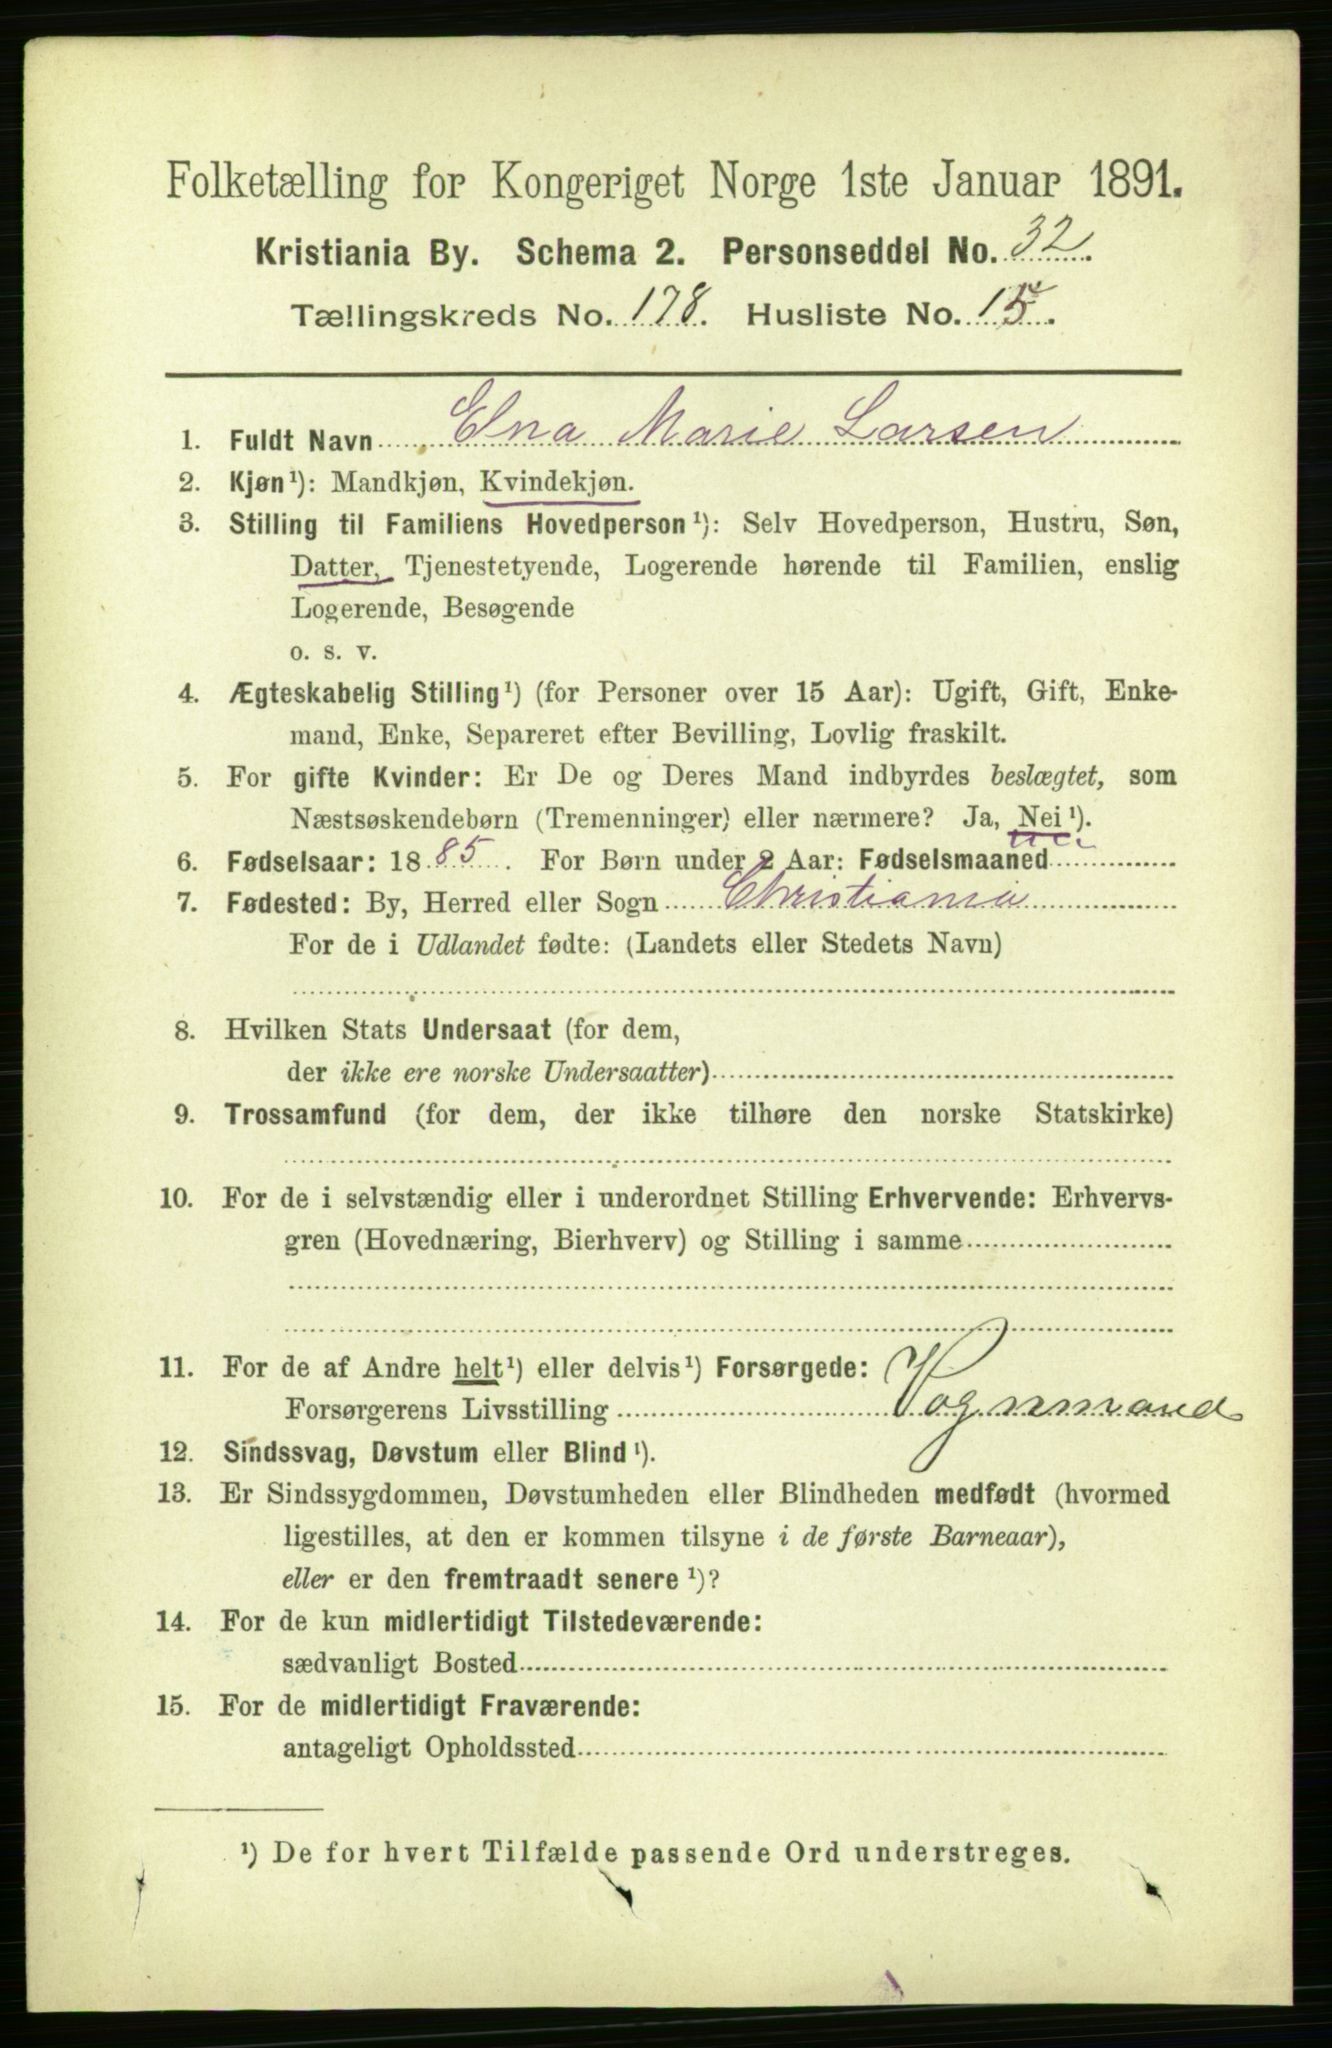 Folketælling for Kongeriget Norge 1ste Januar 1891.
Kristiania By. Schema 2. Personseddel No. 32.
Tællingskreds No. 178. Husliste No. 15.
1. Fuldt Navn Elna Marie Larsen
2. Kjøn¹): Mandkjøn, Kvindekjøn.
3. Stilling til Familiens Hovedperson¹): Selv Hovedperson, Hustru, Søn,
Datter, Tjenestetyende, Logerende hørende til Familien, enslig
Logerende, Besøgende
o. s. v.
4. Ægteskabelig Stilling¹) (for Personer over 15 Aar): Ugift, Gift, Enke-
mand, Enke, Separeret efter Bevilling, Lovlig fraskilt.
5. For gifte Kvinder: Er De og Deres Mand indbyrdes beslægtet, som
Næstsøskendebørn (Tremenninger) eller nærmere? Ja, Nei¹).
6. Fødselsaar: 1885. For Børn under 2 Aar: Fødselsmaaned
7. Fødested: By, Herred eller Sogn Christiania
For de i Udlandet fødte: (Landets eller Stedets Navn)
8. Hvilken Stats Undersaat (for dem,
der ikke ere norske Undersaatter)
9. Trossamfund (for dem, der ikke tilhøre den norske Statskirke)
10. For de i selvstændig eller i underordnet Stilling Erhvervende: Erhvervs-
gren (Hovednæring, Bierhverv) og Stilling i samme
11. For de af Andre helt¹) eller delvis¹) Forsørgede:
Forsørgerens Livsstilling Vognmand
12. Sindssvag, Døvstum eller Blind¹).
13. Er Sindssygdommen, Døvstumheden eller Blindheden medfødt (hvormed
ligestilles, at den er kommen tilsyne i de første Barneaar),
eller er den fremtraadt senere¹)?
14. For de kun midlertidigt Tilstedeværende:
sædvanligt Bosted
15. For de midlertidigt Fraværende:
antageligt Opholdssted
¹) De for hvert Tilfælde passende Ord understreges.